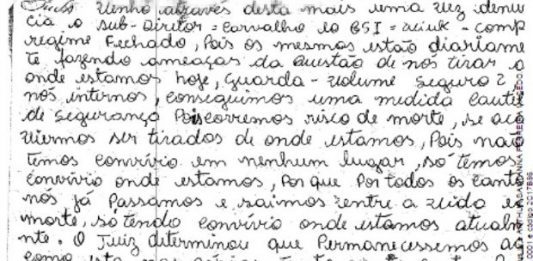 Juiz venho através desta mais uma vez denu
cia o sub-Diretor = Carvalho e o GSI = - comp
regime Fechado, Pois os mesmos estão diariame
te fazendo ameaças da Questão de nós tirar d
onde estamos hoje, Guarda-volume Seguro 2,
nós internos, conseguimos uma medida Cautel
de Segurança Pois corremos risco de morte, se aco
viermos ser tirados de onde estamos, Pois nao
temos convívio em nenhum lugar, só temos
convívio onde estamos, Por que Por todos os Canto
nós já Passamos e saimos entre a vida e
morte, só tendo convívio onde estamos atualm
nte. O Juiz determinou que Permanecessemos ao
como esta